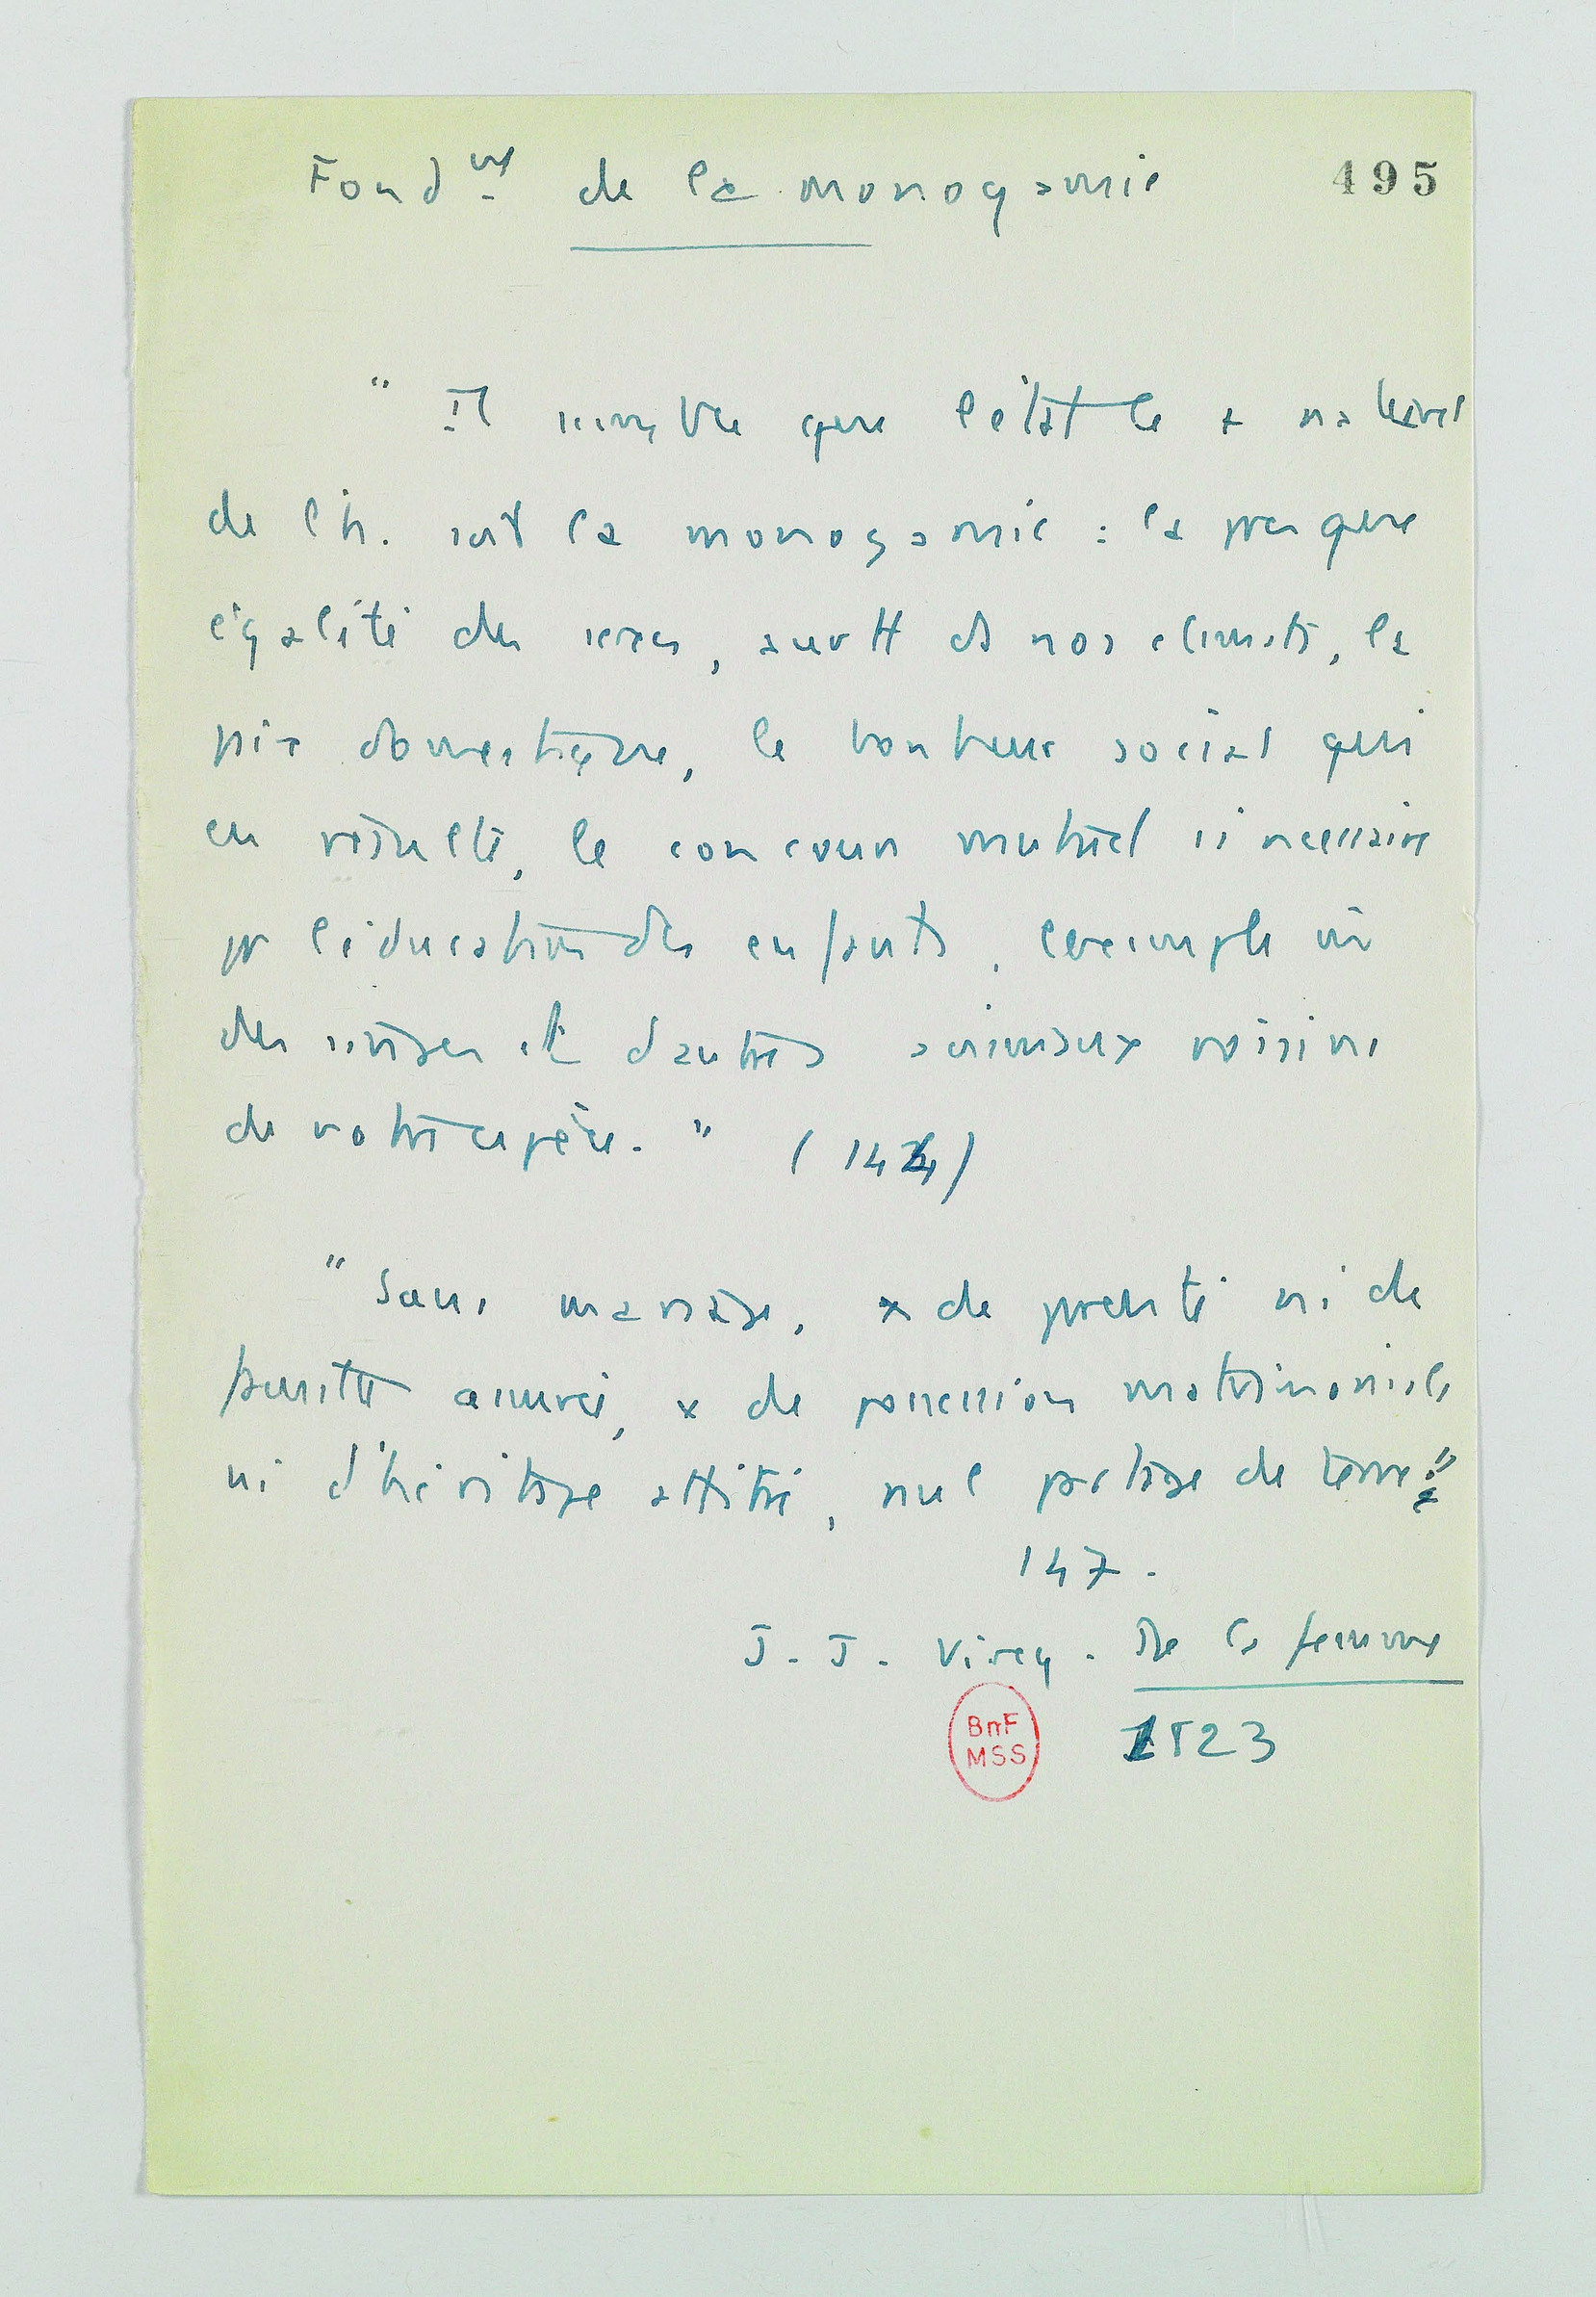 Fond^mt de la monogamie
495
" Il semble que l'état le + naturel
de l'h. soit la monogamie : la presque
égalité des sexes, surtt ds nos climats, la
paix domestique, le bonheur social qui
en résulte, le concours mutuel si nécessaire
pr l'éducation des enfants, l'exemple mê
des singes et d'autres animaux voisins
de notre espèce. " (144)
" Sans mariage, x de parenté ni de
famille assurée, x de possession matrimoniale
ni d'héritage attitré, nul partage de terre"
147.
J. J. Virey. De la femme
BnF
MSS
1823